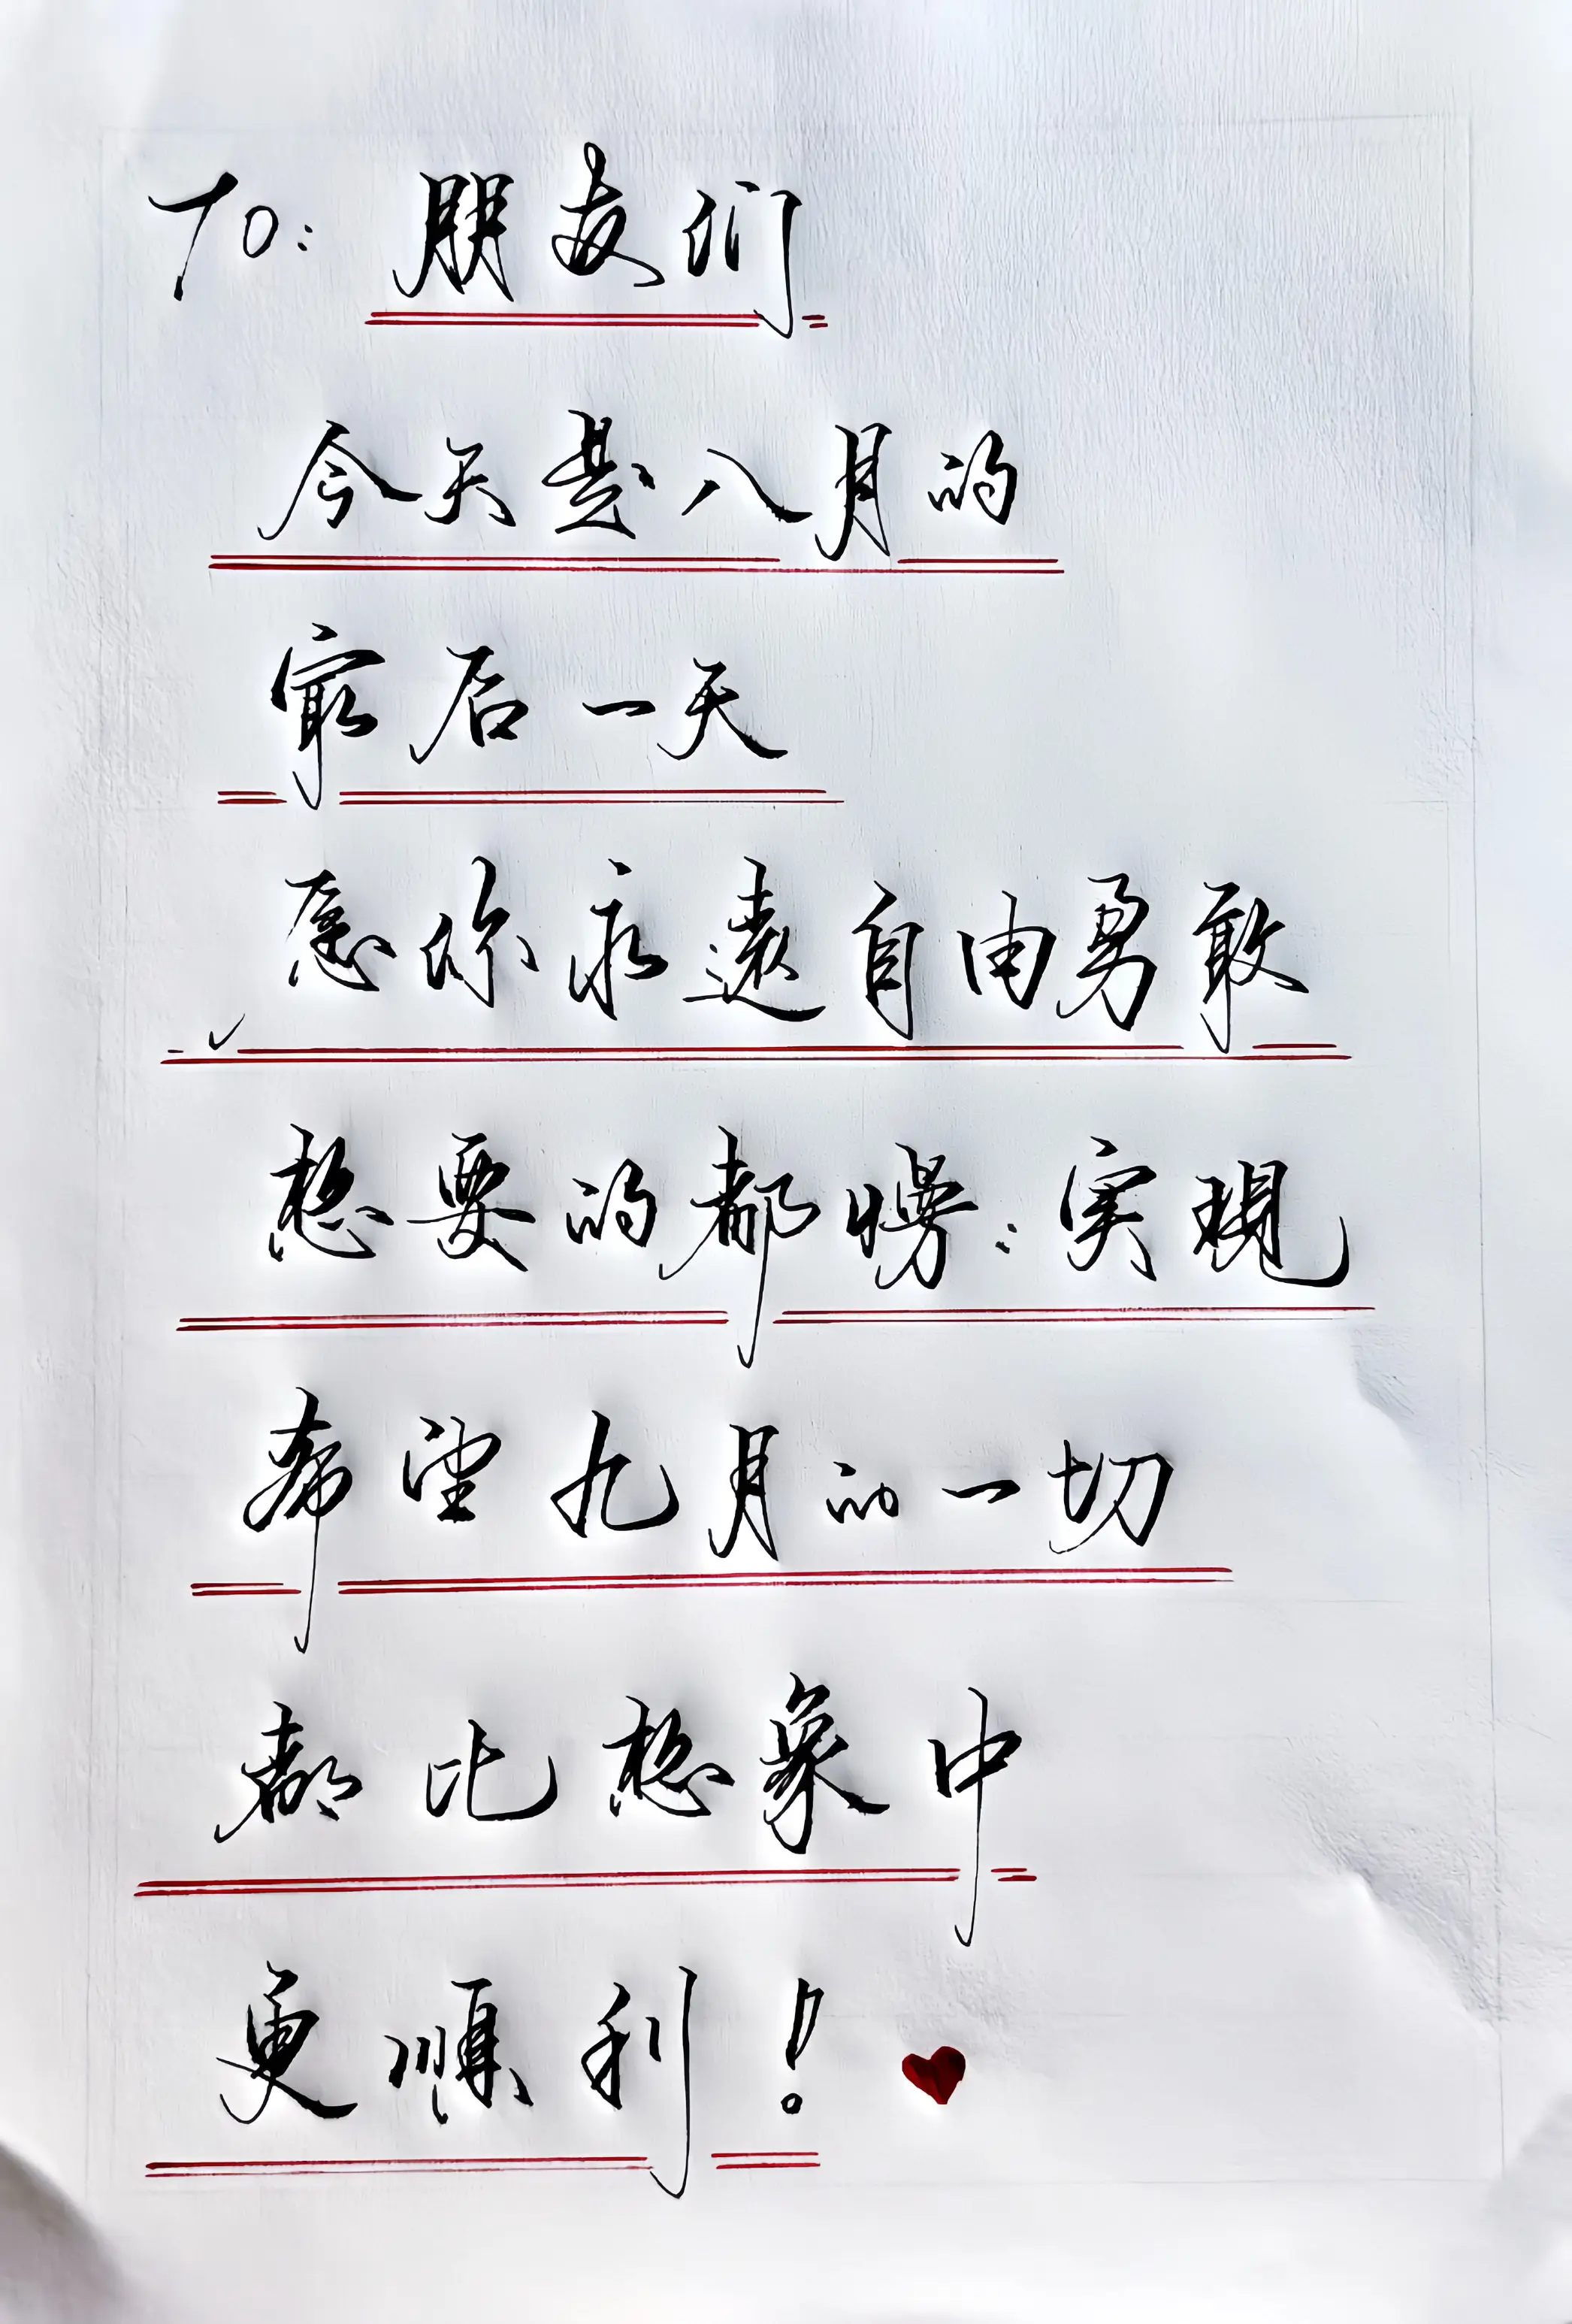 To: 朋友们
今天是八月的
最后一天
愿你永遠自由勇敢
想要的都慢:实現
希望九月的一切
都比想象中
更順利!